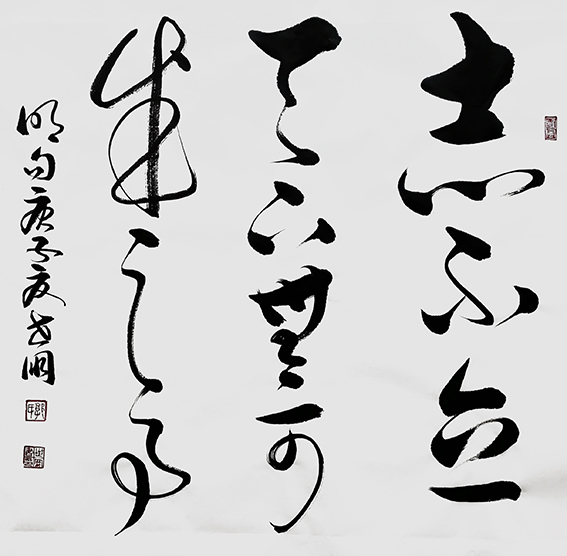 志不立
天下無可
成之事
明句庚子夏